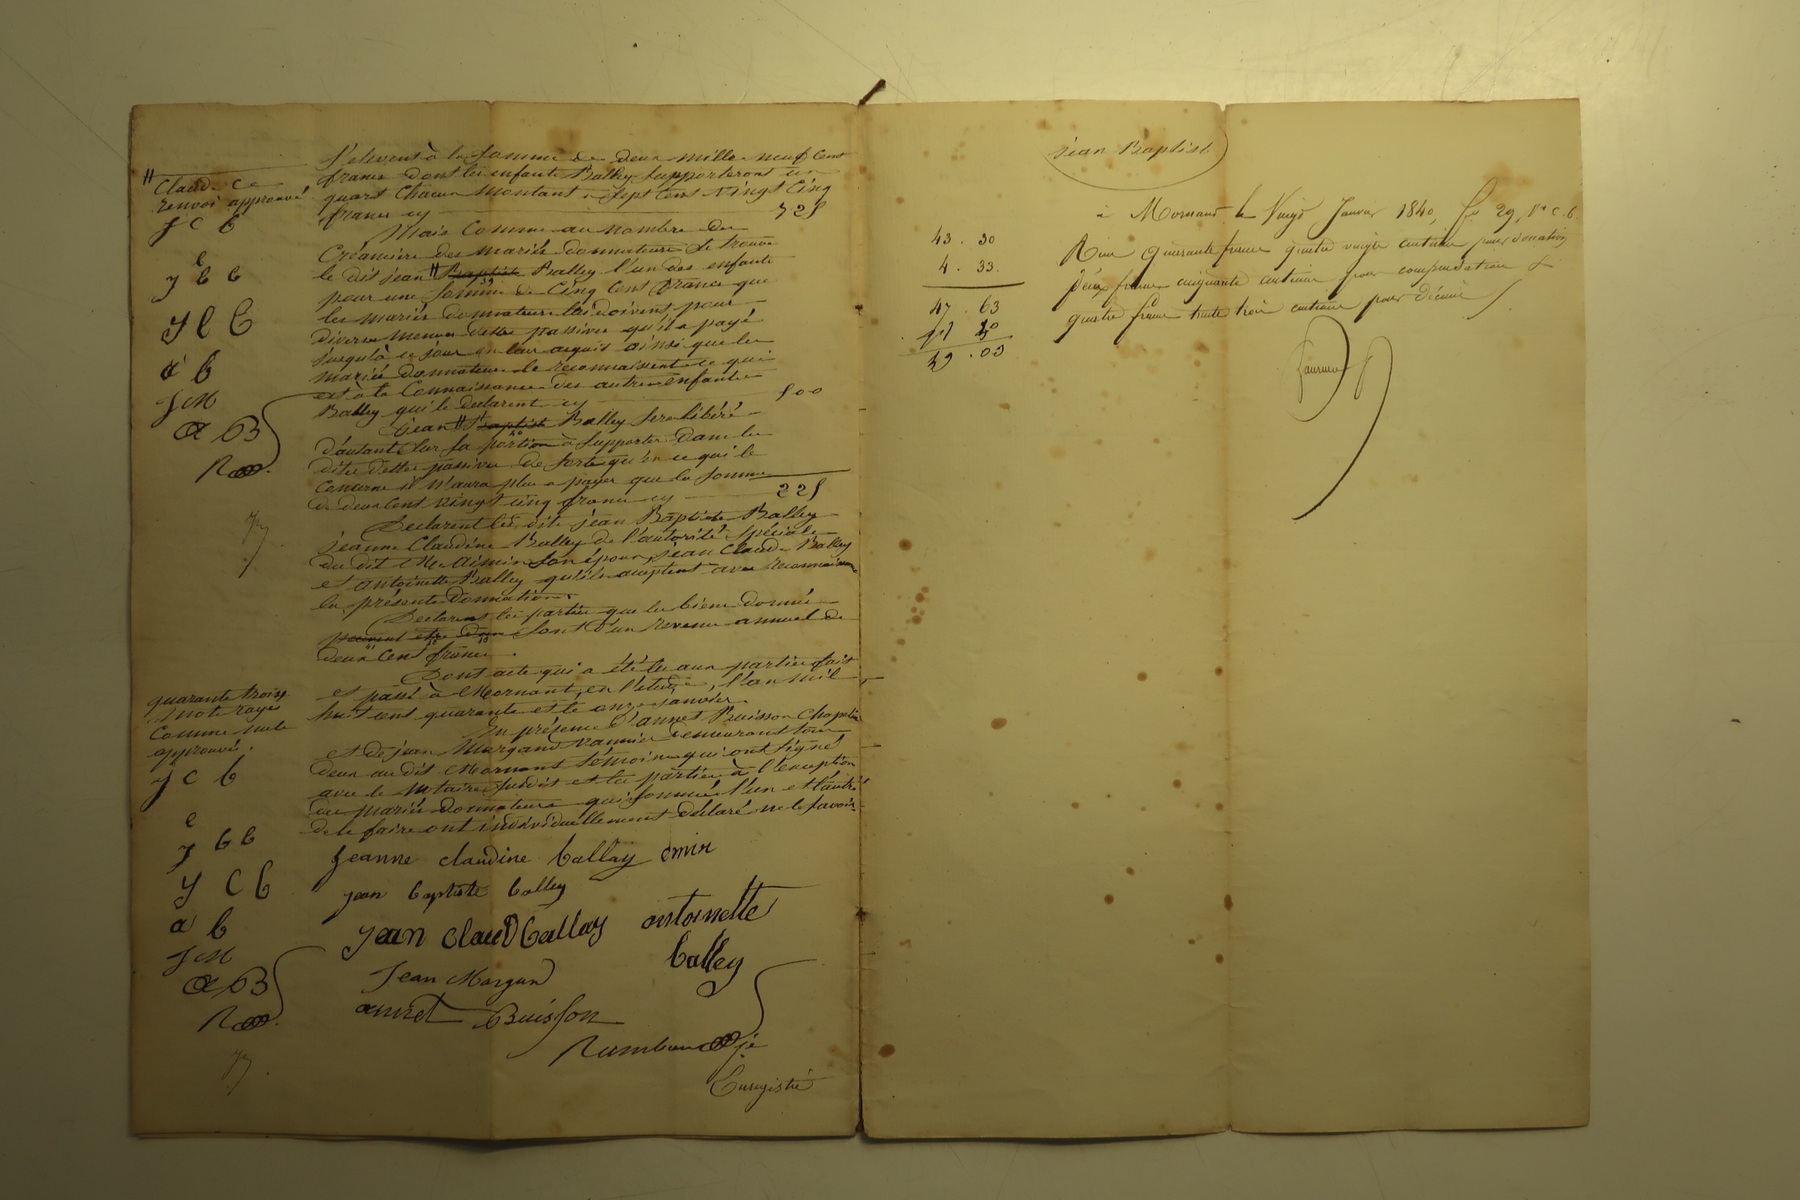 s'elevent à la somme de deux mille neuf cent
francs dont les enfants Balley supporteront un
quart chacun montant a sept cent vingt cinq
francs cy 725
Mais comme au nombre des
créanciers des mariés donnateurs se trouve
le dit jean # Baptiste Balley l'un des enfants
pour une somme de cinq cent francs que
les mariés donnateurs lui doivent pour
diverses menues dettes passives qu'il a payé
jusqu'à ce jour en leur acquit ainsi que les
mariés donnateurs le reconnaissent ce qui
est à la connaissance des autres enfants
Balley qui le declarent cy 500
jean # Baptiste Balley sera libéré
d'autant sur sa portion à supporter dans les
dites dettes passives de sorte qu'en ce qui le
concerne il n'aura plus a payer que la somme
de deux cent vingt cinq francs cy 225
Declarent les dits jean Baptiste Balley
jeanne Claudine Balley de l'autorité spéciale
du dit son époux, jean Claude Balley
et antoinette Balley qu'ils acceptent avec reconnaissance
la présente donnation.
Declarent les parties que les biens donnés
peuvent etre d'un sont d'un revenu annuel de
deux cent francs.
Dont acte qui a été lu aux parties fait
et passé à Mornant, en l'etude, l'an mil
huit cent quarante et le onze janvier.
En présence d'annet Buisson chapelier
et de jean Morgand vannier demeurant tous
deux au dit Mornant témoins qui ont signé
avec le notaire susdit et les parties à l'exception
des mariés donnateurs qui sommés l'un et l'autre
de le faire ont individuellement déclaré ne le savoir
# Claude ce
renvoi approuvé
J C b
e
J b b
J C b
a b
J M
a B
R
quarante trois
mots rayés
comme nuls
approuvés.
J C b
e
J b b
J C b
a b
J M
a B
R
Jeanne claudine ballay
jean baptiste balley
jean claud ballay antoinette
balley
Jean Morgand
annet Buisson
Enregistré
jean Baptiste
43 . 30
4 . 33
47 . 63
49 . 03
à Mornant le Vingt Janvier 1840, fo 29, Vo c. 6
Reçu quarante francs quatre vingts centimes pour donation
Deux francs cinquante centimes pour compensation &
quatre francs trente trois centimes pour décime